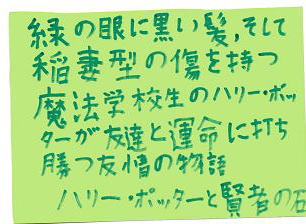 緑の眼に黒い髪,そして
稲妻型の傷を持つ
魔法学校生のハリー・ポッ
ターが友達と運命に打ち
勝つ友情の物語
ハリー・ポッターと賢者の石